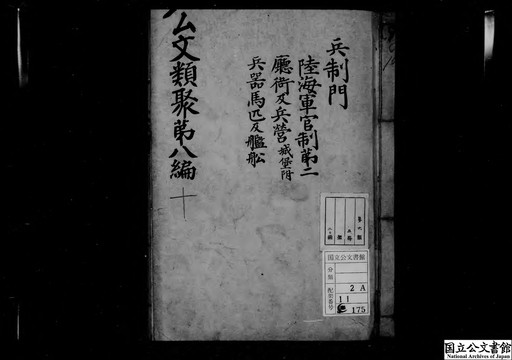 兵制門
陸海軍官制第二
廳衙及兵営城堡附
兵器馬匹及艦舩
公文類聚第八編
十
国立公文書館
分類
配架番号
2 A
11
175
国立公文書館
National Archives of Japan